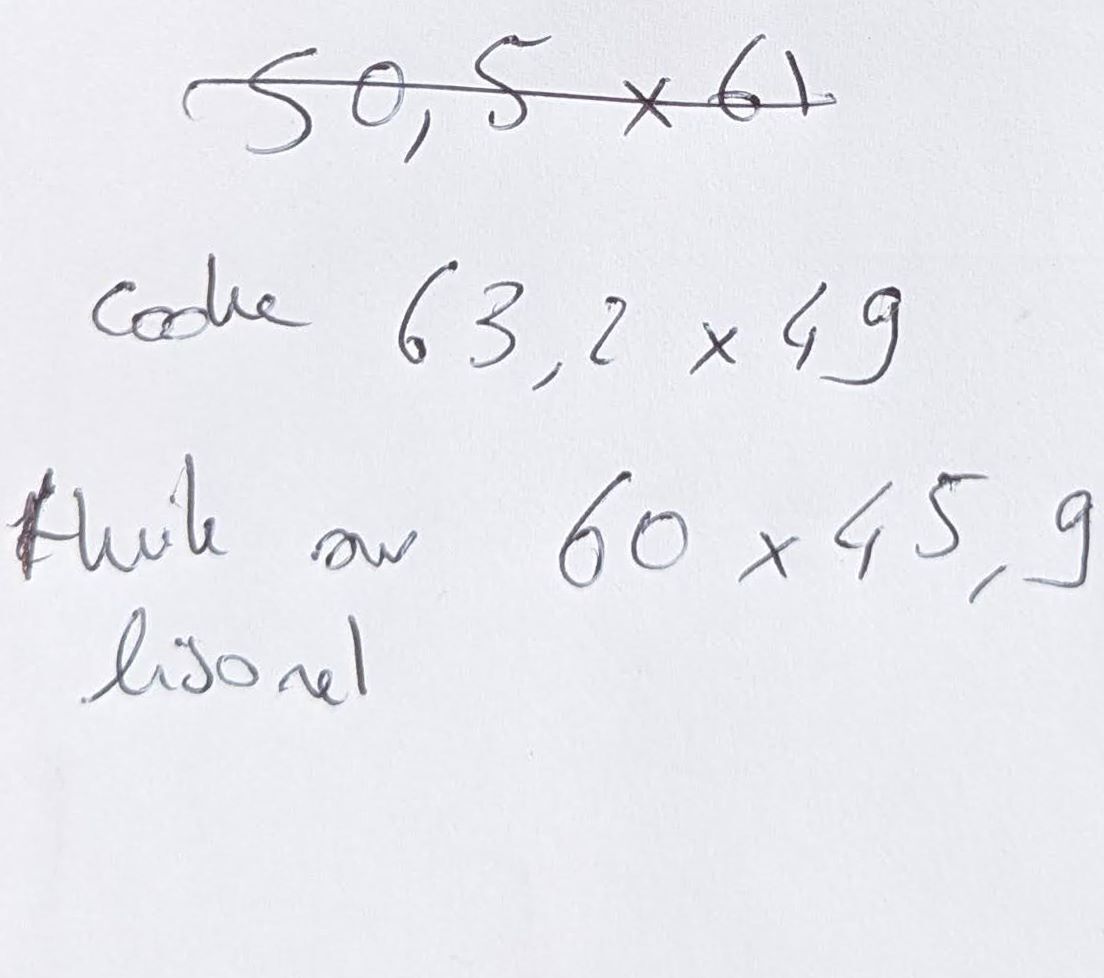 50,5 x 61
cadre 63,2 x 49
Huile sur 60 x 45,9
lisorel